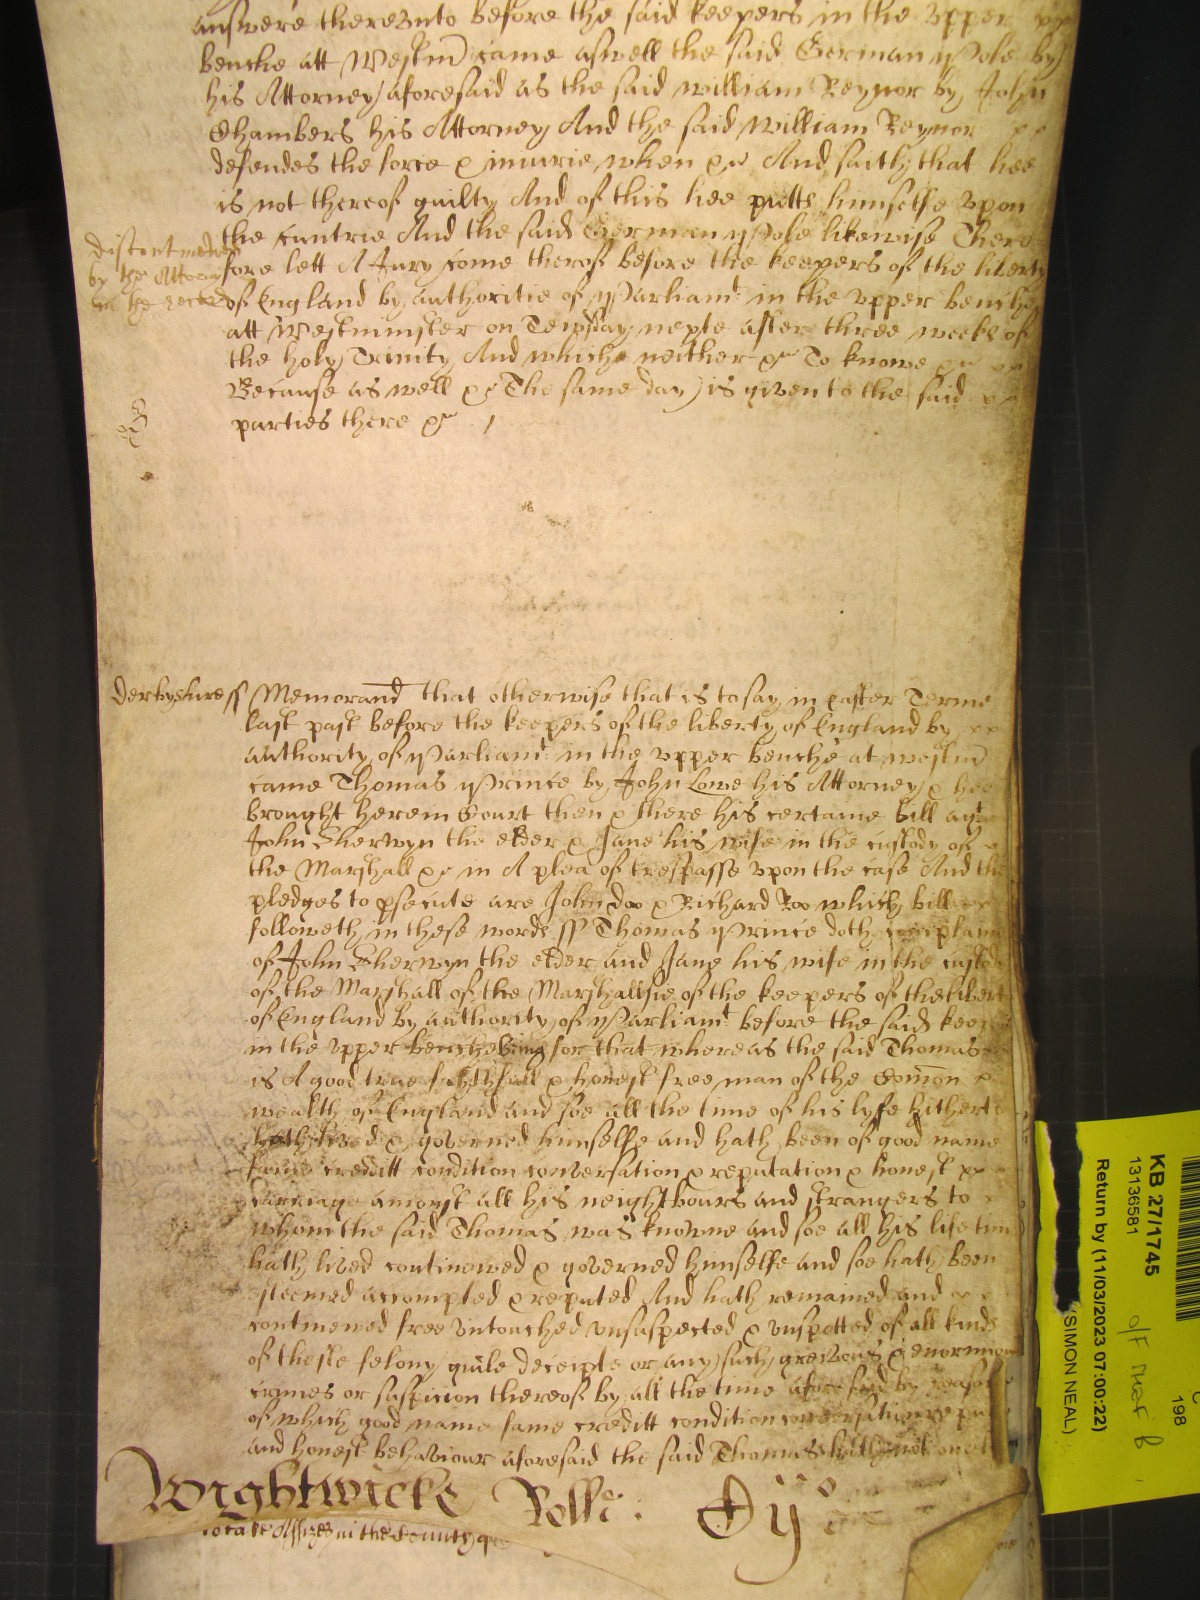 answere thereunto before the said keepers in the upper
benche att Westm̃ came aswell the said German Pole by
his Attorney aforesaid as the said William Reynor by John
Chambers his Attorney And the said William Reynor
defendes the force & iniurie when &c And saith that hee
is not thereof guilty And of this hee putts himselfe vpon
the cuntrie And the said German Pole likewise There
fore lett A Jury come therof before the keepers of the liberty
of England by authoritie of Parliamt in the vpper benche
att Westminster on Tewsday nexte after three weeks of
the holy Trinity And which neither &c To knowe &c
Because as well &c The same day is given to the said
parties there &c
discontinued
by the Attorny
in the
Derbyshire ss Memorand that otherwise that is to say in easter Terme
last past before the keepers of the liberty of England by
authority of Parliamt in the vpper benche at westm̃
came Thomas Prince by John Lowe his Attorney & hee
brought here in Court then & there his certaine bill agt
John Sherwyn the elder & Jane his wife in the custody of
the Marshall &c in A plea of trespasse vpon the case And the
pledges to psecute are John doo & Richard Roo which bill
followeth in these words ss Thomas Prince doth complaine
of John Sherwyn the elder and Jane his wife in the custod
of the Marshall of the Marshallsie of the keepers of the libert
of England by authority of Parliamt before the said keep
in the vpper benche being for that whereas the said Thomas
is A good true faithfull & honest free man of the Com̃on
wealth of England and soe all the time of his lyfe hitherto
hath lived & governed himselfe and hath been of good name
fame creditt condition conversation & reputation & honest
carriage amongst all his neighbours and strangers to
whom the said Thomas was knowne and soe all his life time
hath lived continewed & governed himselfe and soe hath been
esteemed accompted & reputed And hath remained and
continewed free vntouched vnsuspected & vnspotted of all kinds
of thefte felony guile deceipte or any such grevous & enormous
crimes or suspicion thereof by all the time aforesaid by reason
of which good name fame creditt condition conversation repu
and honest behaviour aforesaid the said Thomas hath not onely
Wightwicke Rolle:
to take Assizes in the County
KB 27/1745
13136581
Return by (11/03/2023 07:00:22)
(SIMON NEAL)
198